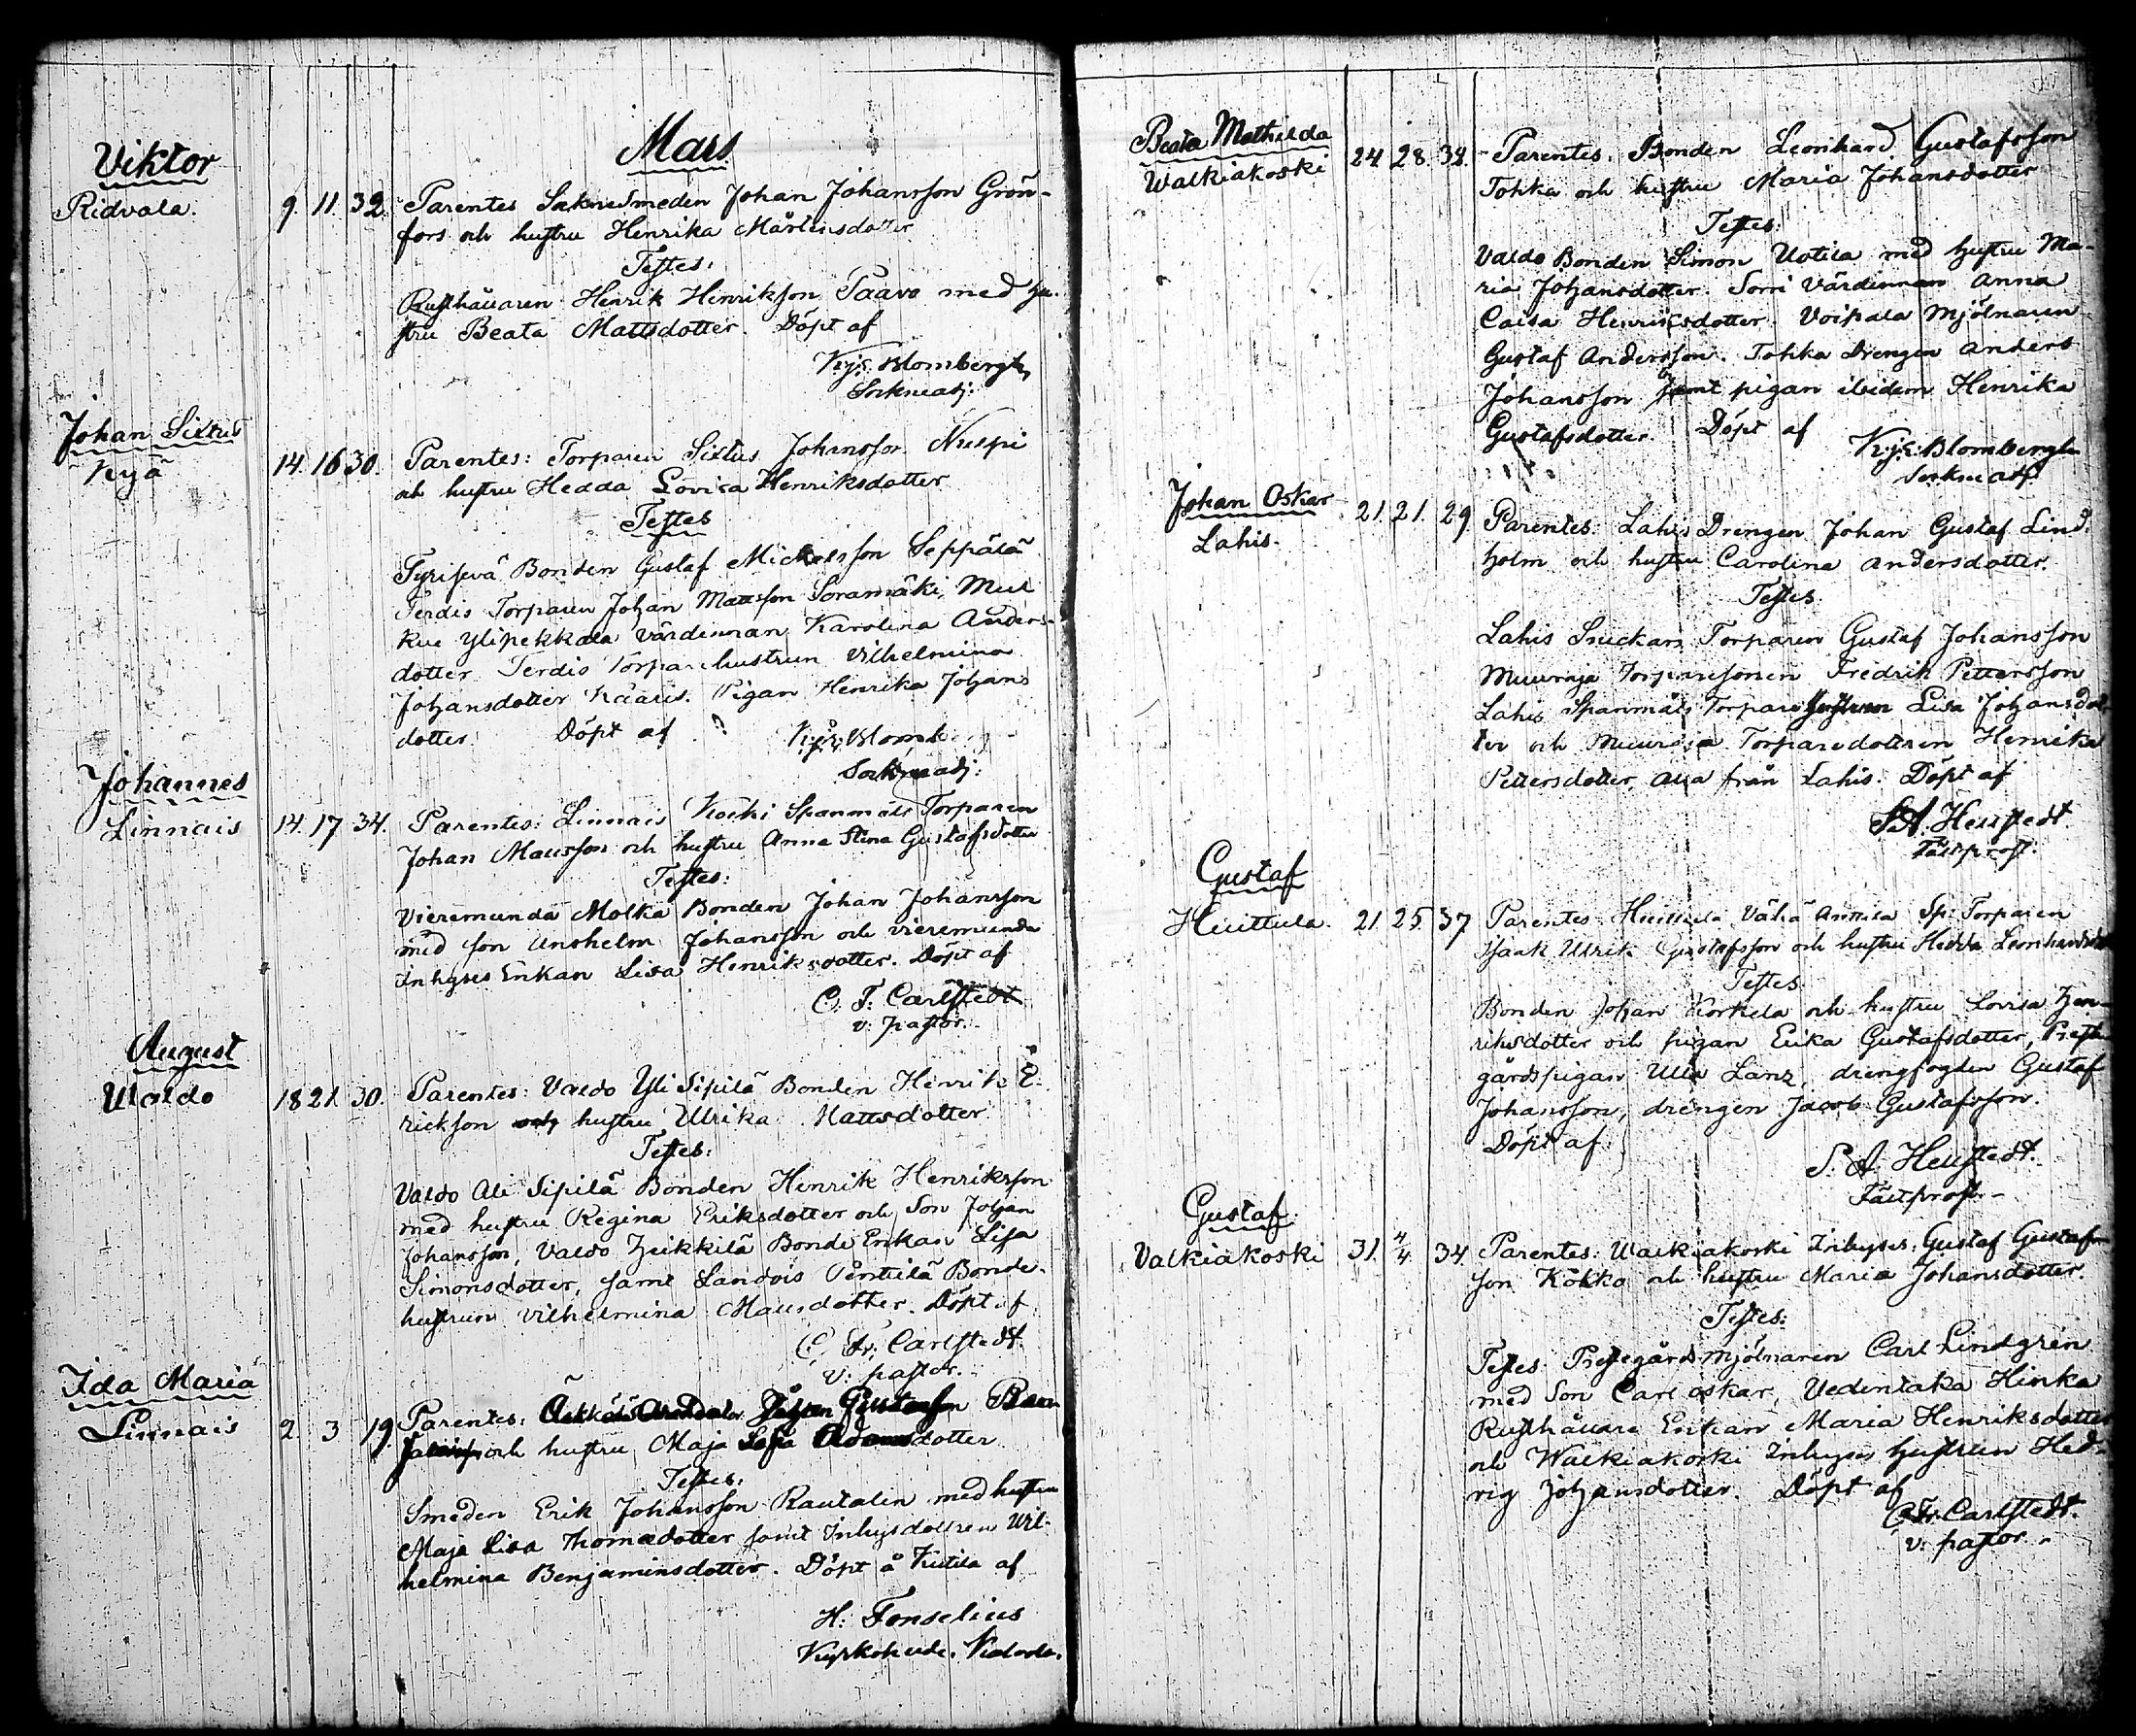 Mars
Viktor
Ridvala. 9. 11. 32. Parentes Smeden Johan Johansson Grön-
fors och hustru Henrika Mårtensdotter
Testes:
Rusthållaren Henrik Henriksson Paavo med hu-
stru Beata Mattsdotter. Döpt af
Blombergh
Sockneadj:
Johan Sixtus
Kyä 14. 16 30. Parentes: Torparen Sixtus Johansson
och hustru Hedda Lovisa Henriksdotter
Testes
Bonden Gustaf Michelsson Seppälä
Terdis Torparen Johan Mattsson Soramäki,
Ylipekkala värdinnan Karolina Anders-
dotter Terdis Torparehustrun Vilhelmina
Johansdotter Pigan Henrika Johans
dotter. Döpt af
Sockneadj:
Johannes
Linnais 14. 17 34. Parentes: Linnais Spanmåls Torparen
Johan Mattsson och hustru Anna Stina Gustafsdotter
Testes:
Vieremunda Molka Bonden Johan Johansson
med son Anshelm Johansson och vieremunda
Inhyses Enkan Lisa Henriksdotter. Döpt af
C. F. Carlstedt
v: pastor.
August
Waldo 18 21. 30. Parentes: Valdo Yli Sipilä Bonden Henrik E-
rickson och hustru Ulrika Mattsdotter
Testes:
Valdo Ali Sipilä Bonden Henrik Henriksson
med hustru Regina Eriksdotter och Son Johan
Johansson, Valdo Heikkilä Bonde Enkan Lisa
Simonsdotter, samt Landois Pänttilä Bonde-
hustrun Vilhelmina Mattsdotter. Döpt af
C. Fr. Carlstedt.
v: pastor.
Ida Maria
Linnais 2. 3 19. Parentes: Johan Gustafsson
och hustru Maja Sofia Adamsdotter
Testes:
Smeden Erik Johansson Rautalin med hustru
Maja Lisa Thomasdotter samt Inhysdottren Wil-
helmina Benjaminsdotter. Döpt å Kutila af
H: Fonselius
Kyrkoherde. Kalvola.
Beata Mathilda
Walkiakoski 24 28. 38. Parentes. Bonden Leonhard Gustafsson
Tohka och hustru Maria Johansdotter
Testes:
Valdo Bonden Simon Uotila med hustru Ma-
ria Johansdotter. Sorri Värdinnan Anna
Caisa Henriksdotter. Voipala Mjölnaren
Gustaf Andersson. Tohka Drengen Anders
Johansson samt pigan ibidem Henrika
Gustafsdotter. Döpt af
Blombergh
Socknadj
Johan Oskar
Lahis. 21. 21. 29. Parentes: Lahis Drengen Johan Gustaf Lind-
holm och hustru Carolina Andersdotter.
Testes.
Lahis Snickars Torparen Gustaf Johansson
Muuraja Torparesonen Fredrik Pettersson
Lahis Spanmåls Torpare hustrun Lisa Johansdot
ter och Muuraja Torparedottren Henrika
Pettersdotter, alla från Lahis. Döpt af
S. A. Hellstedt
Fältprost.
Gustaf
Huittula. 21 25. 37 Parentes Huittula Vähä Annila Sp: Torparen
Isaak Ulrik Gustafsson och hustru Hedda Leonhardsdotter
Testes
Bonden Johan Korkela och hustru Lovisa Hen-
riksdotter och pigan Erika Gustafsdotter, Preste-
gårdspigan Ulla Lanz, drengfogden Gustaf
Johansson, drengen Jacob Gustafsson.
Döpt af
S. A. Hellstedt.
Fältprost.
Gustaf
Valkiakoski 31. 4/4 34. Parentes: Walkiakoski Inhyses. Gustaf Gustafs-
son Kokko och hustru Maria Johansdotter.
Testes:
Testes Prestegårds mjölnaren Carl Lindgren
med Son Carl Oskar, Uedentaka Hinka
Rusthållare Enkan Maria Henriksdotter
och Walkiakoski Inhyses hustrun Hed-
vig Johansdotter. Döpt af
C. Fr. Carlstedt.
v: pastor.